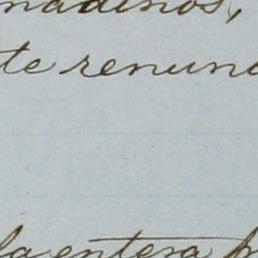 madinos,
te renun
la entera p